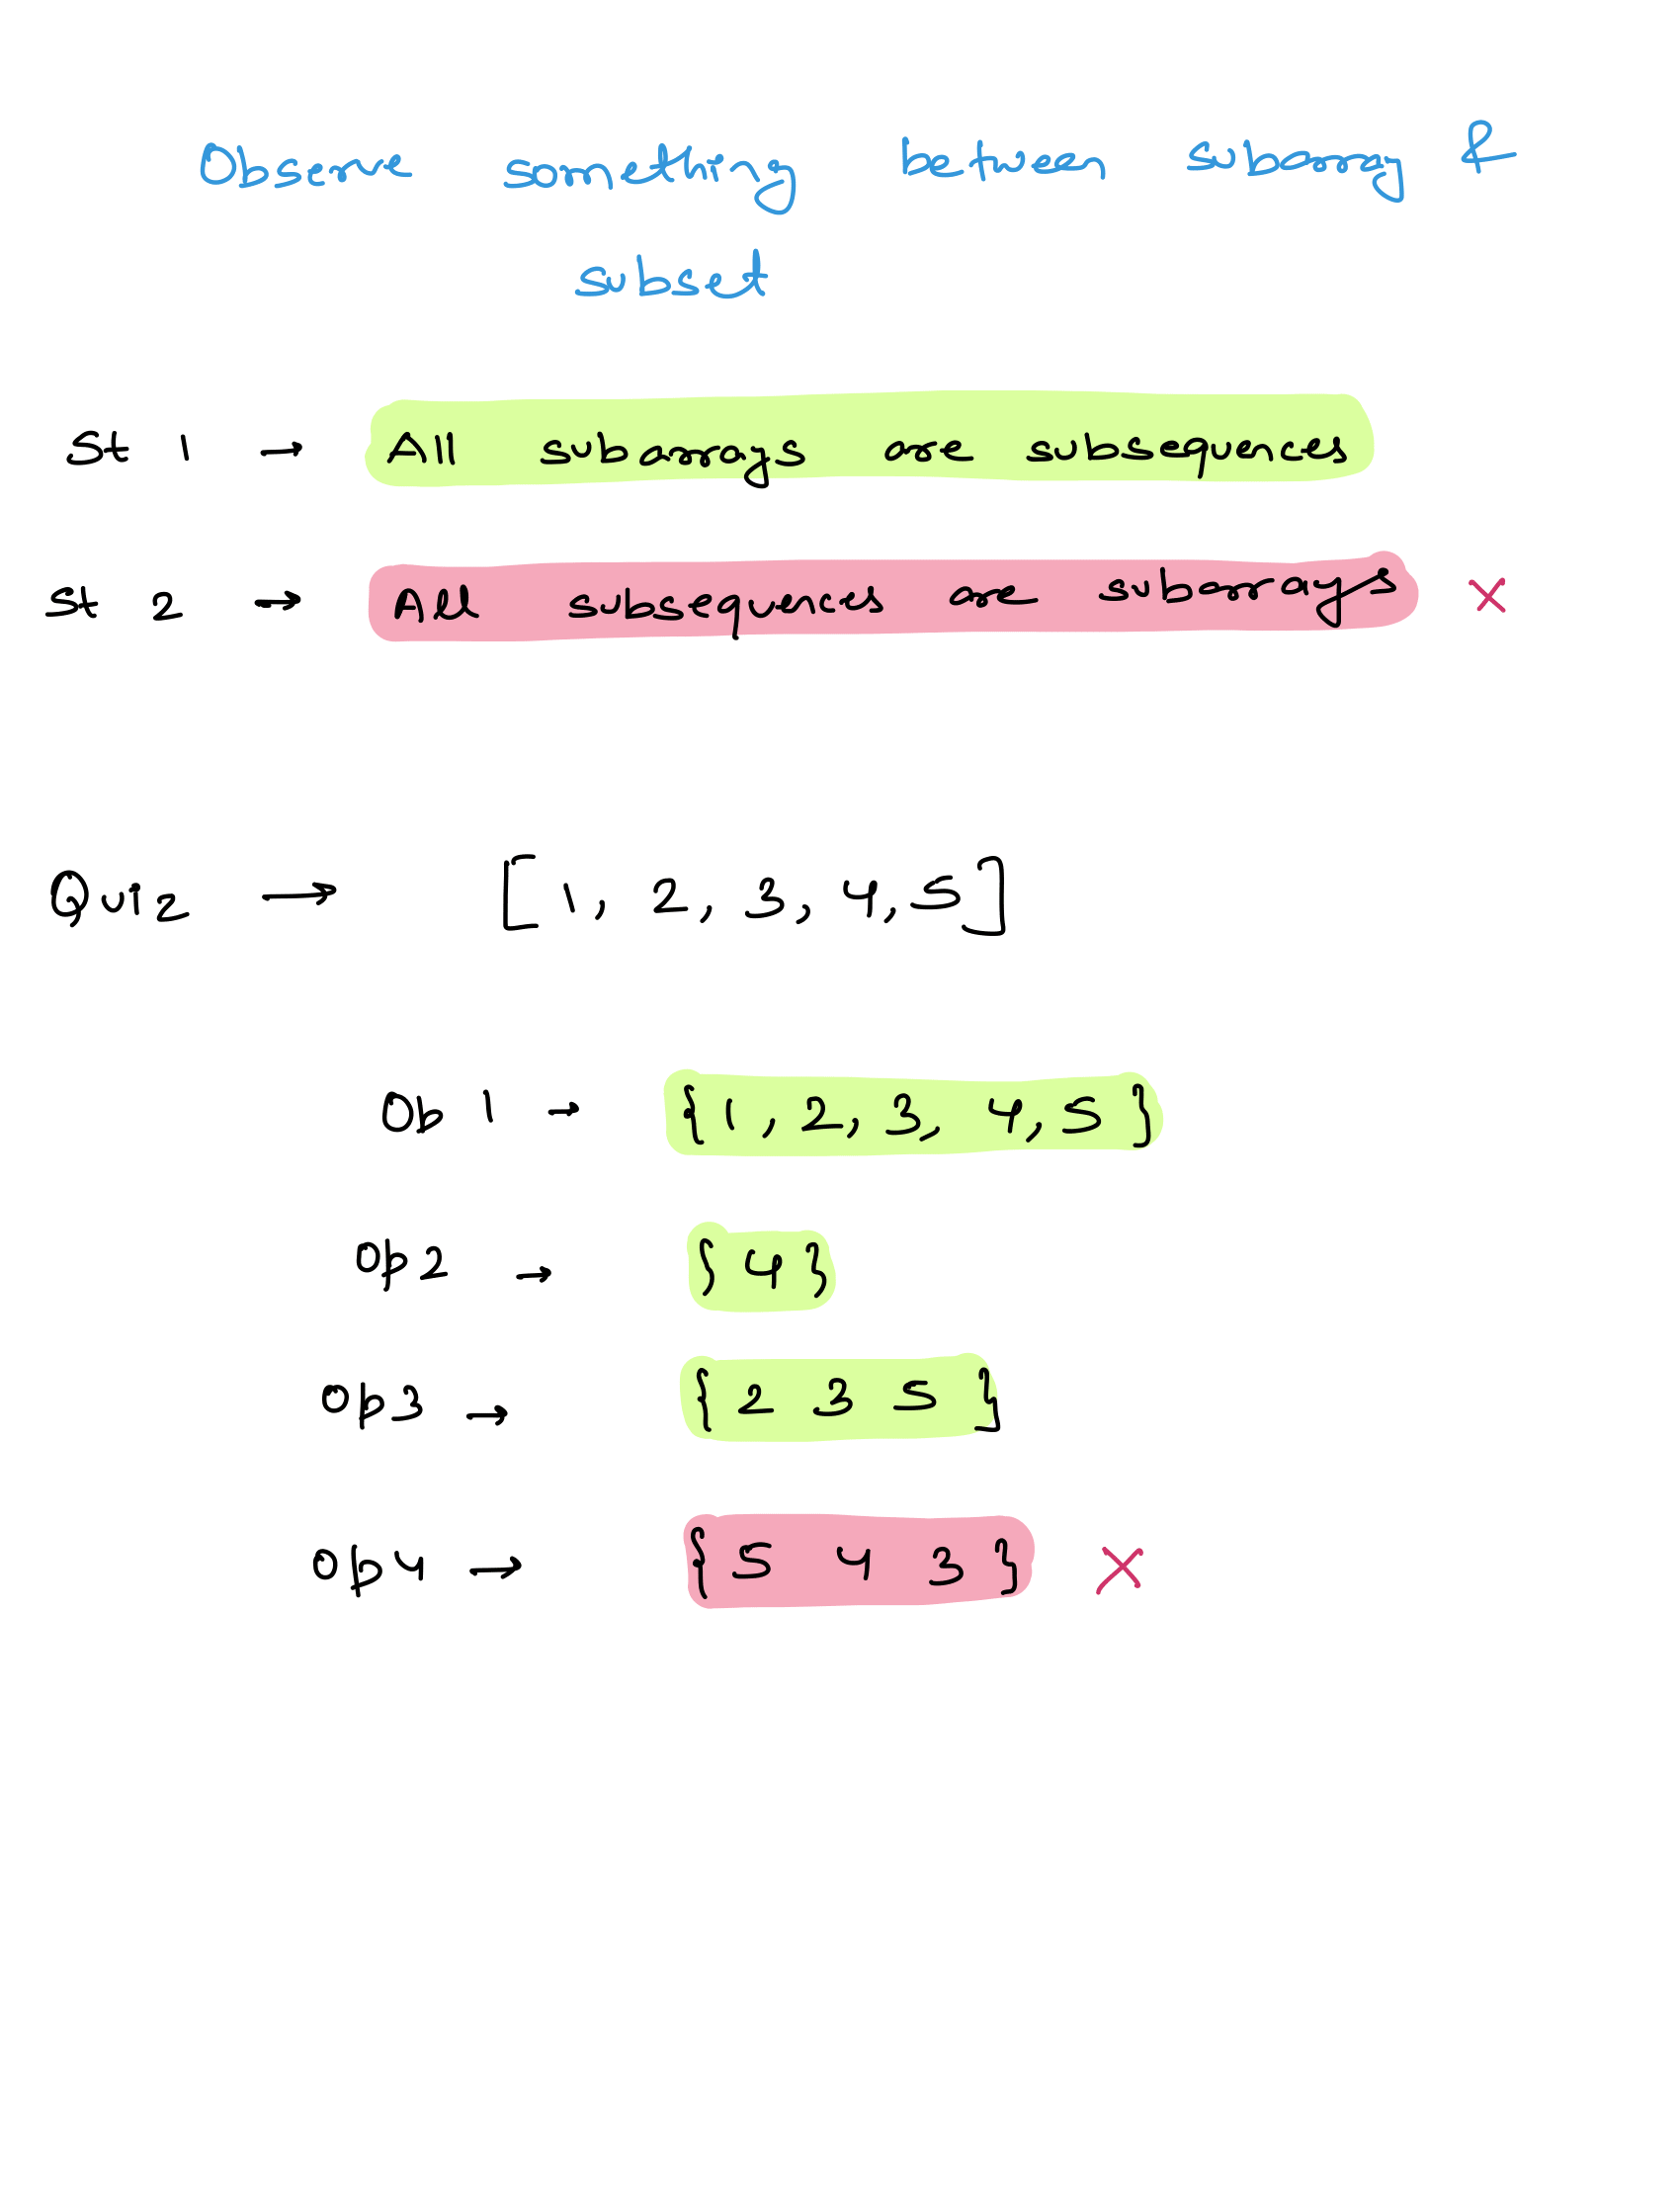 Observe something between subarray &
subset
St 1 → All subarrays are subsequences
St 2 → All subsequences are subarrays ×
Quiz → [1, 2, 3, 4, 5]
Op 1 → {1, 2, 3, 4, 5}
Op2 → {4}
Op3 → {2 3 5}
Op4 → {5 4 3} ×